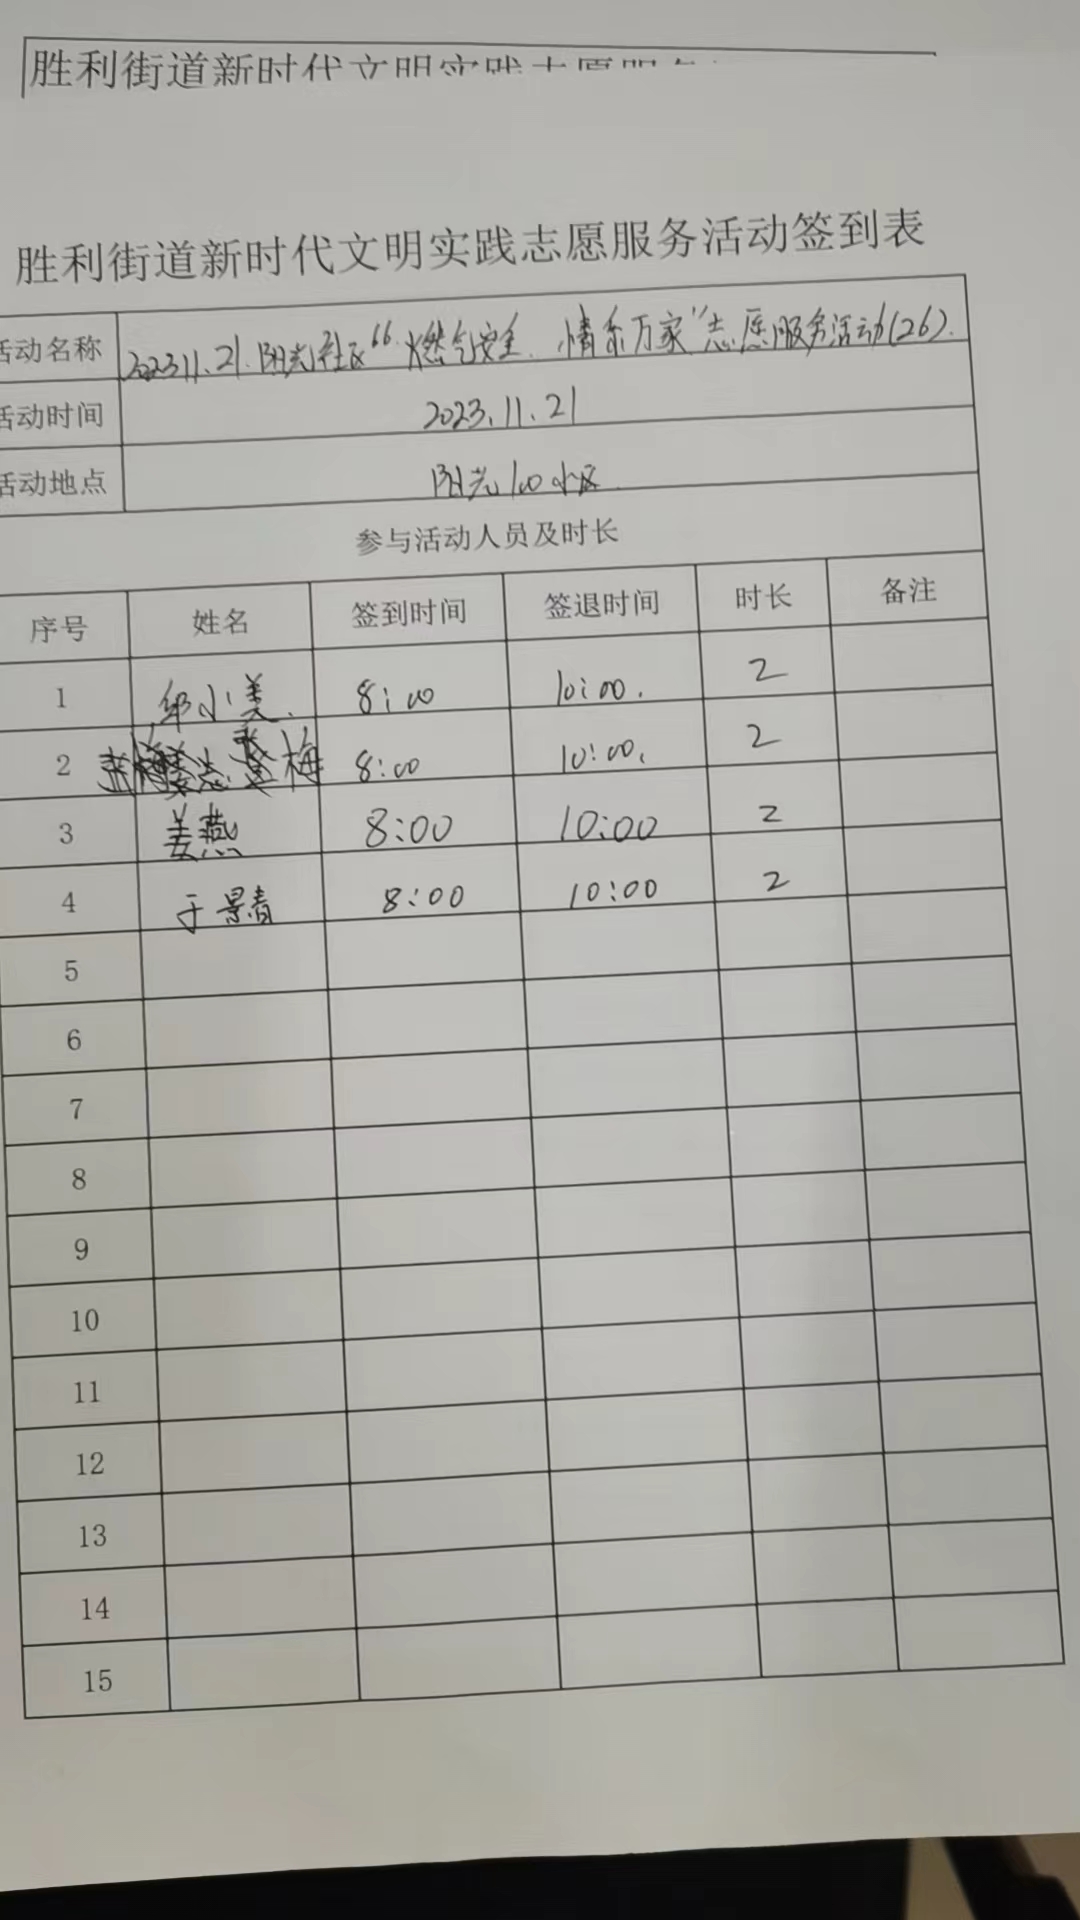 胜利街道新时代文明实践志愿服务
胜利街道新时代文明实践志愿服务活动签到表
活动名称 2023.11.21.阳光社区“燃气安全.情系万家”志愿服务活动(26).
活动时间 2023.11.21
活动地点 阳光100小区
参与活动人员及时长
序号 姓名 签到时间 签退时间 时长 备注
1 邹小美. 8:00 10:00. 2
2 梅 8:00 10:00. 2
3 姜燕 8:00 10:00 2
4 于景青 8:00 10:00 2
5
6
7
8
9
10
11
12
13
14
15